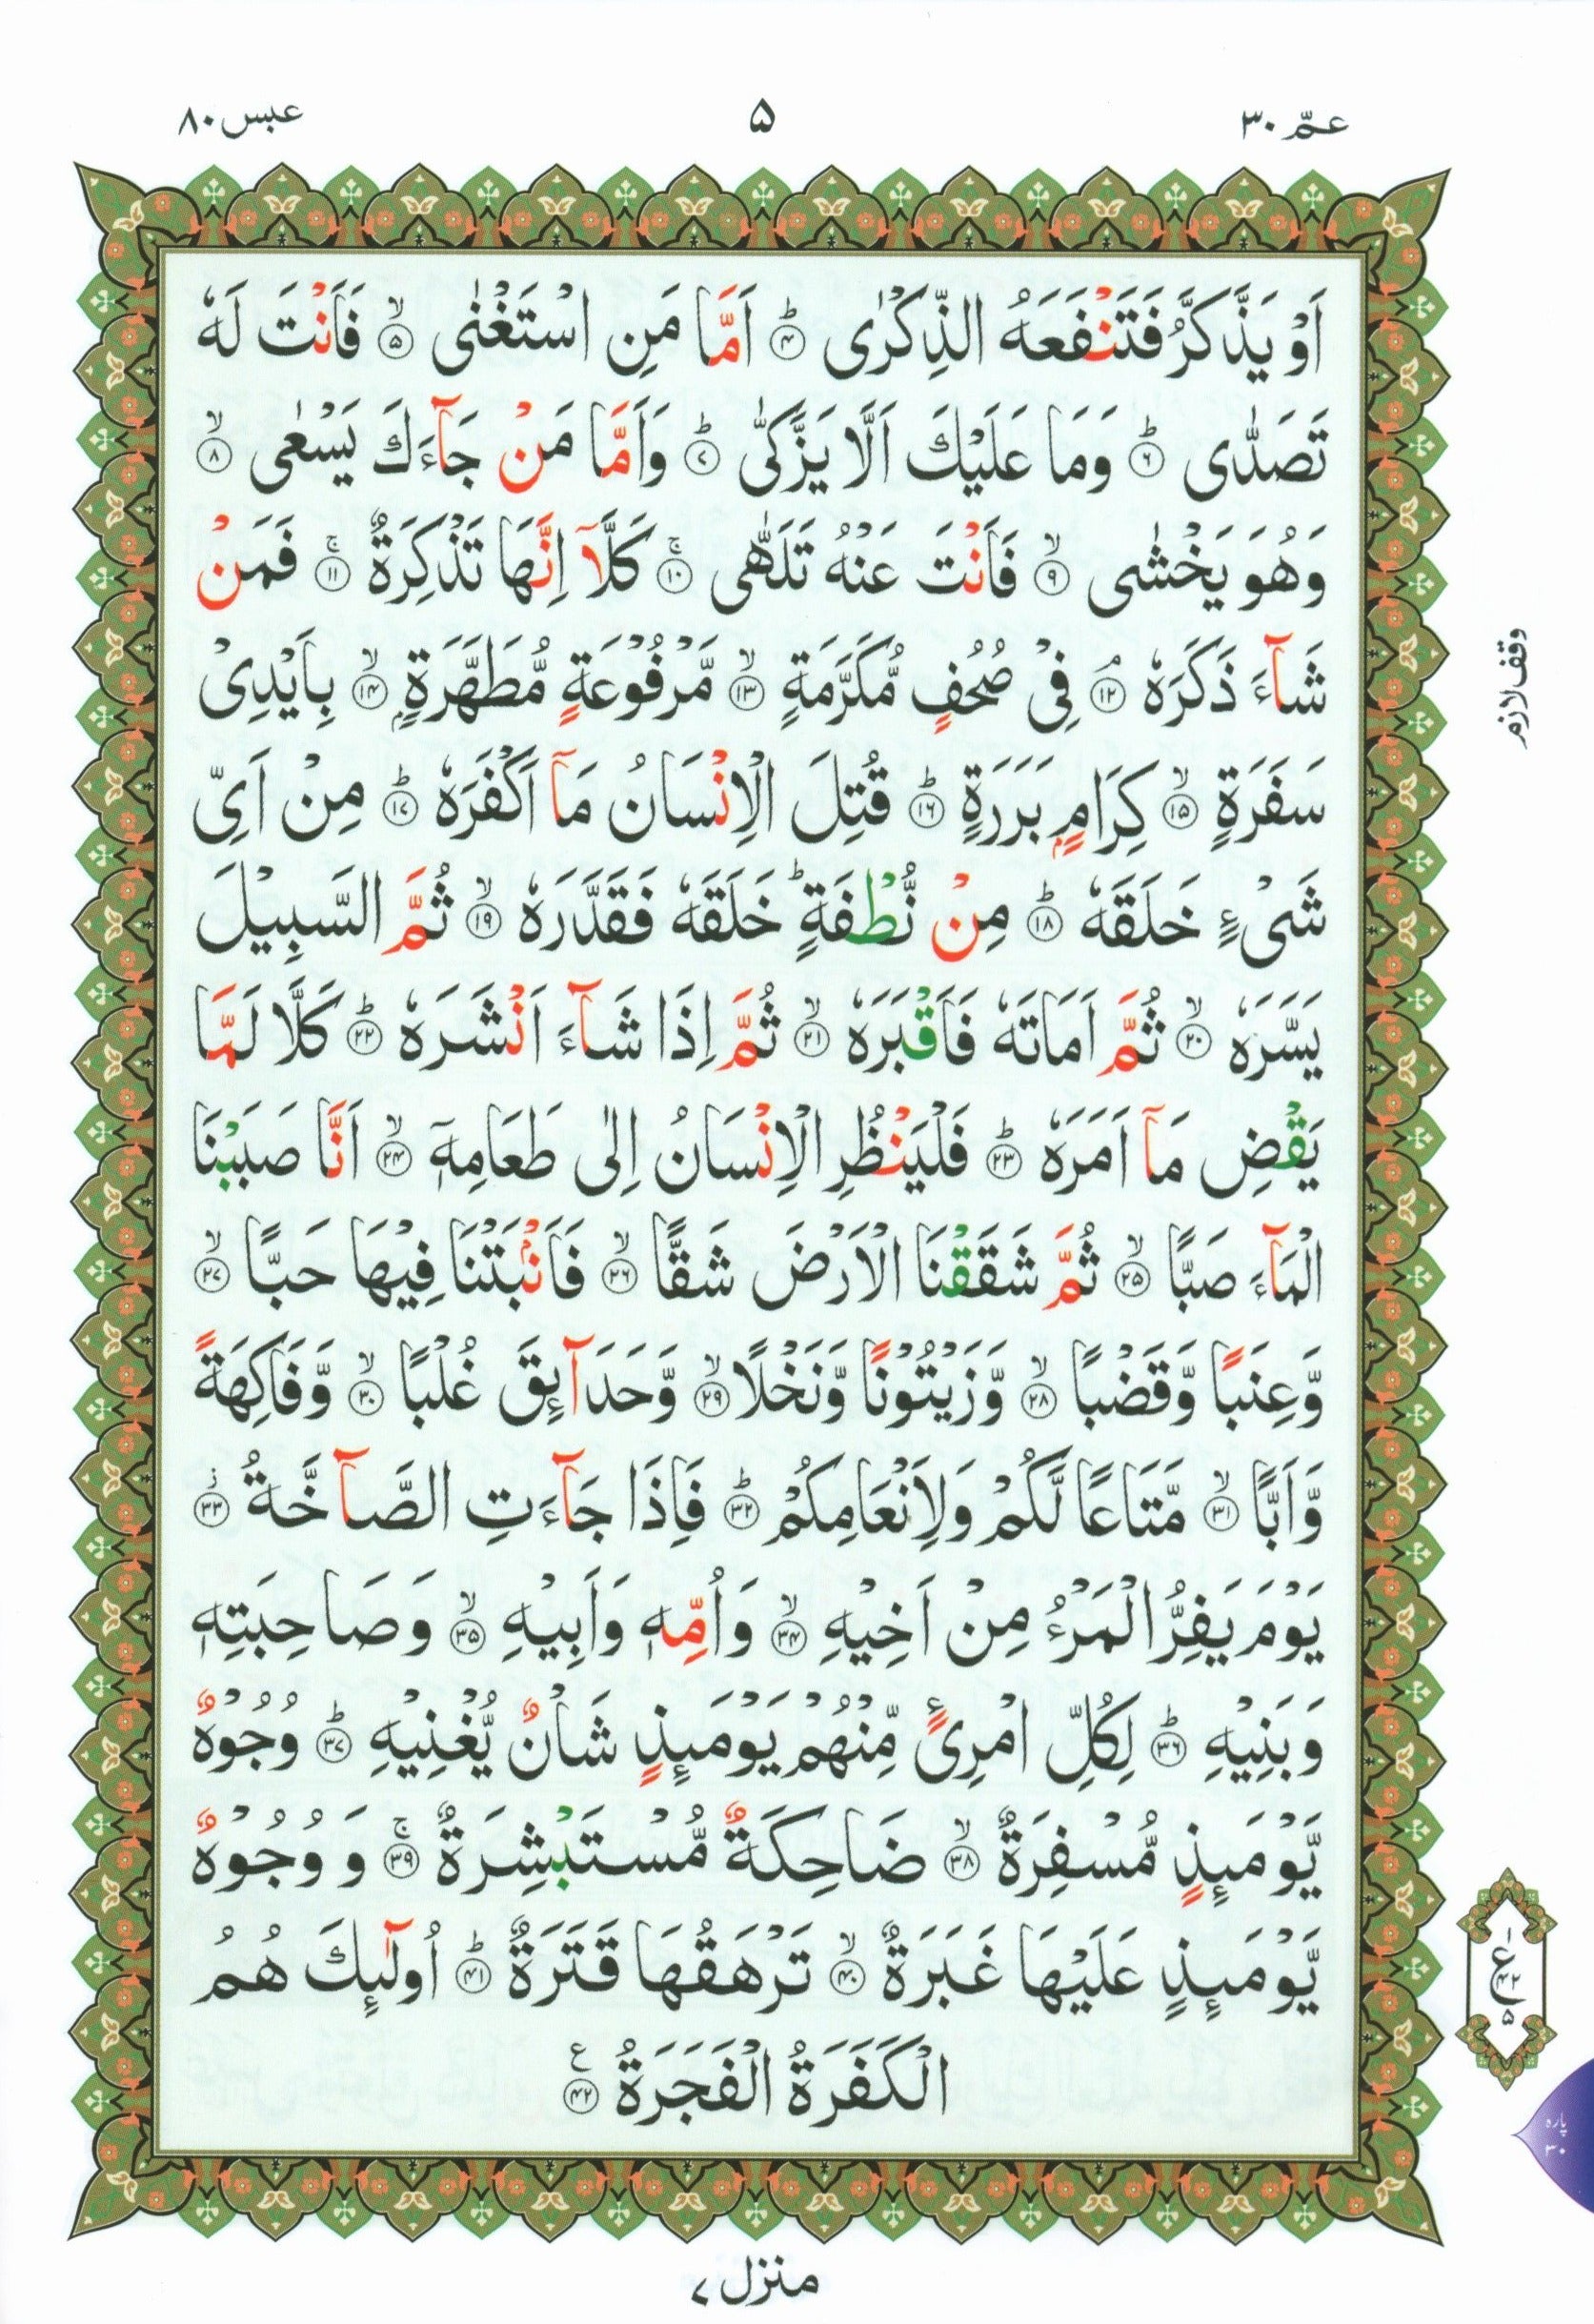 عمّ ٣٠
۵
عبس ٨٠
اَوْ يَذَّكَّرُ فَتَنْفَعَهُ الذِّكْرٰى ۴ؕ اَمَّا مَنِ اسْتَغْنٰى ۵ۙ فَاَنْتَ لَهٗ
تَصَدّٰى ۶ؕ وَمَا عَلَيْكَ اَلَّا يَزَّكّٰى ۷ؕ وَاَمَّا مَنْ جَآءَكَ يَسْعٰى ۸ۙ
وَهُوَ يَخْشٰى ۹ۙ فَاَنْتَ عَنْهُ تَلَهّٰى ۱۰ۚ كَلَّاۤ اِنَّهَا تَذْكِرَةٌ ۱۱ۚ فَمَنْ
شَآءَ ذَكَرَهٗ ۱۲ۘ فِىْ صُحُفٍ مُّكَرَّمَةٍ ۱۳ۙ مَّرْفُوْعَةٍ مُّطَهَّرَةٍۭ ۱۴ۙ بِاَيْدِىْ
سَفَرَةٍ ۱۵ۙ كِرَامٍۭ بَرَرَةٍ ۱۶ؕ قُتِلَ الْاِنْسَانُ مَاۤ اَكْفَرَهٗ ۱۷ؕ مِنْ اَىِّ
شَىْءٍ خَلَقَهٗ ۱۸ؕ مِنْ نُّطْفَةٍؕ خَلَقَهٗ فَقَدَّرَهٗ ۱۹ۙ ثُمَّ السَّبِيْلَ
يَسَّرَهٗ ۲۰ۙ ثُمَّ اَمَاتَهٗ فَاَقْبَرَهٗ ۲۱ۙ ثُمَّ اِذَا شَآءَ اَنْشَرَهٗ ۲۲ؕ كَلَّا لَمَّا
يَقْضِ مَاۤ اَمَرَهٗ ۲۳ؕ فَلْيَنْظُرِ الْاِنْسَانُ اِلٰى طَعَامِهٖۤ ۲۴ۙ اَنَّا صَبَبْنَا
الْمَآءَ صَبًّا ۲۵ۙ ثُمَّ شَقَقْنَا الْاَرْضَ شَقًّا ۲۶ۙ فَاَنْۢبَتْنَا فِيْهَا حَبًّا ۲۷ۙ
وَّعِنَبًا وَّقَضْبًا ۲۸ۙ وَّزَيْتُوْنًا وَّنَخْلًا ۲۹ۙ وَّحَدَآئِقَ غُلْبًا ۳۰ۙ وَّفَاكِهَةً
وَّاَبًّا ۳۱ۙ مَّتَاعًا لَّكُمْ وَلِاَنْعَامِكُمْ ۳۲ؕ فَاِذَا جَآءَتِ الصَّآخَّةُ ۳۳ز
يَوْمَ يَفِرُّ الْمَرْءُ مِنْ اَخِيْهِ ۳۴ۙ وَاُمِّهٖ وَاَبِيْهِ ۳۵ۙ وَصَاحِبَتِهٖ
وَبَنِيْهِ ۳۶ؕ لِكُلِّ امْرِئٍ مِّنْهُمْ يَوْمَئِذٍ شَاْنٌ يُّغْنِيْهِ ۳۷ؕ وُجُوْهٌ
يَّوْمَئِذٍ مُّسْفِرَةٌ ۳۸ۙ ضَاحِكَةٌ مُّسْتَبْشِرَةٌ ۳۹ۚ وَ وُجُوْهٌ
يَّوْمَئِذٍ عَلَيْهَا غَبَرَةٌ ۴۰ۙ تَرْهَقُهَا قَتَرَةٌ ۴۱ؕ اُولٰٓئِكَ هُمُ
الْكَفَرَةُ الْفَجَرَةُ ۴۲ع
وقف لازم
۱ ع ۴۲ ۵
پاره ۳۰
منزل ۷